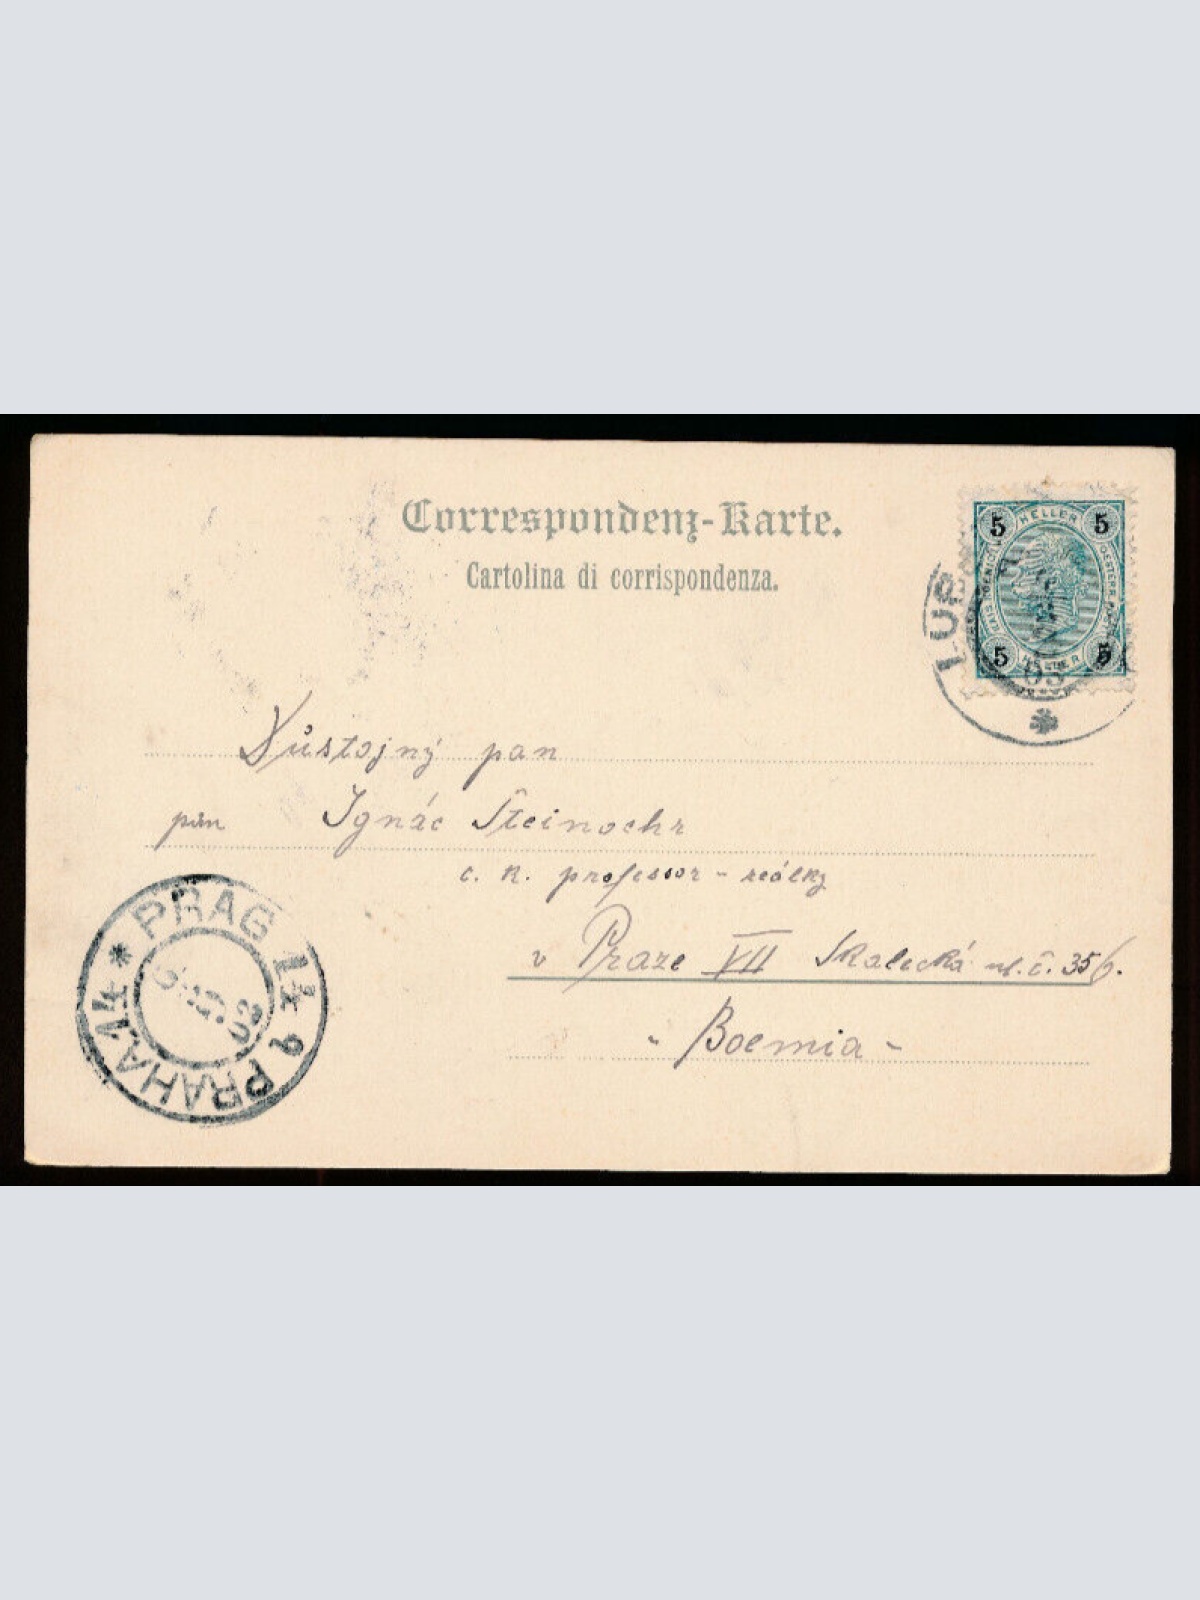 Correspondenz-Karte.
Cartolina di corrispondenza.
5 HELLER 5
5 5
LUS
03
Důstojný pan
pán Ignác Šteinochr
c. k. professor - reálky
v Praze VII Skalecká ul. č. 356.
- Boemia -
PRAG 14
PRAHA 14